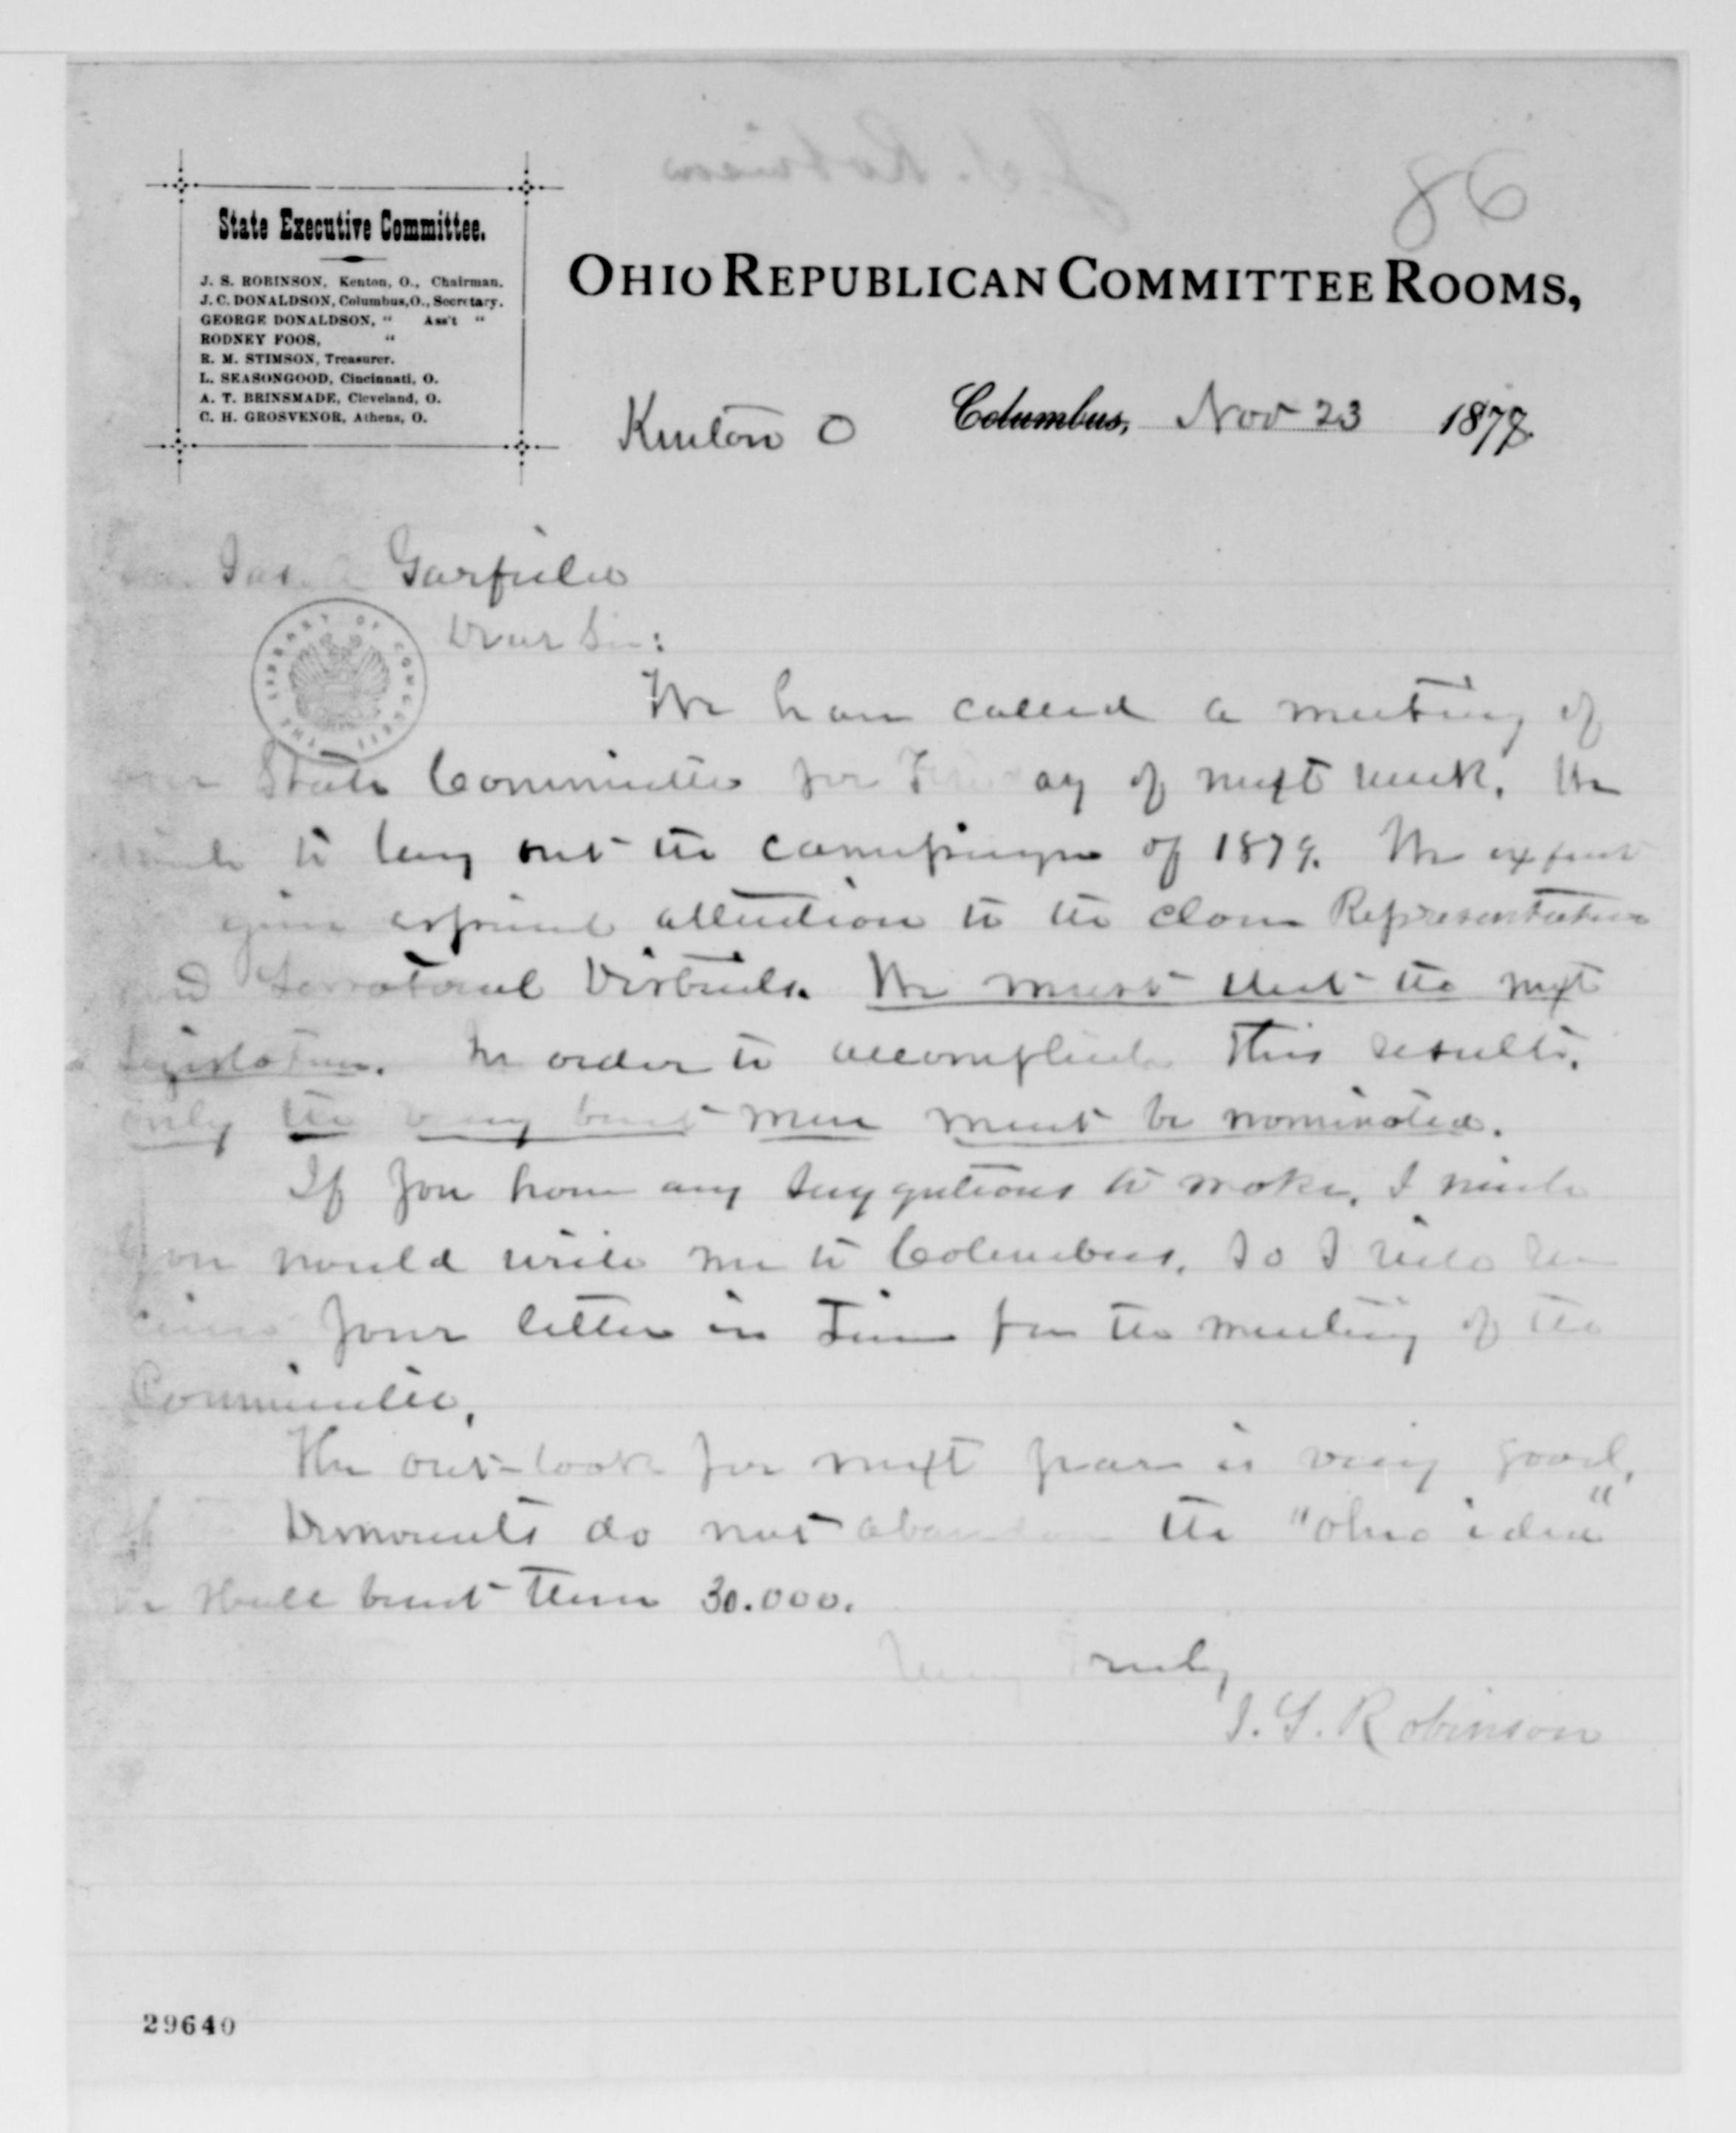 86
State Executive Committee.
J. S. ROBINSON, Kenton, O., Chairman.
J. C. DONALDSON, Columbus, O., Secretary.
GEORGE DONALDSON, " Ass't "
RODNEY FOOS, "
R. M. STIMSON, Treasurer.
L. SEASONGOOD, Cincinnati, O.
A. T. BRINSMADE, Cleveland, O.
C. H. GROSVENOR, Athens, O.
OHIO REPUBLICAN COMMITTEE ROOMS,
Kenton O Columbus, Nov 23 1878
Jas. A Garfield
Dear Sir:
THE LIBRARY OF CONGRESS
We have called a meeting of
our State Committee for ay of next week. We
to lay out the campaign of 1879. We expect
give especial attention to the close Representative
and Senatorial Districts. We must elect the next
Legislature. In order to accomplish this result,
only the very best men must be nominated.
If you have any suggestions to make, I wish
you would write me to Columbus, so I will re-
ceive your letter in time for the meeting of the
Committee.
The out-look for next year is very good.
If Democrats do not abandon the "Ohio idea"
we shall beat them 30.000.
Very Truly
J. S. Robinson
29640